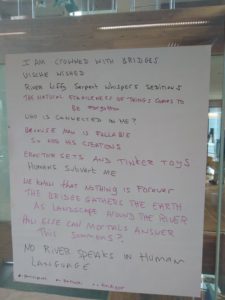 I AM CROWNED WITH BRIDGES
WISHED
RIVER Liffy Serpent Whispers Seditions
THE NATURAL ETHICALNESS OF THINGS COMES TO
BE
WHO IS CONNECTED IN ME?
BECAUSE MAN IS FALLABLE
SO ARE HIS CREATIONS
ERECTOR SETS AND TINKER TOYS
HUMANS SUBVERT ME
WE KNOW THAT NOTHING IS FOREVER
THE BRIDGE GATHERS THE EARTH
AS LANDSCAPE AROUND THE RIVER
HOW ELSE CAN MORTALS ANSWER
THIS SUMMONS?
NO RIVER SPEAKS IN HUMAN
LANGUAGE